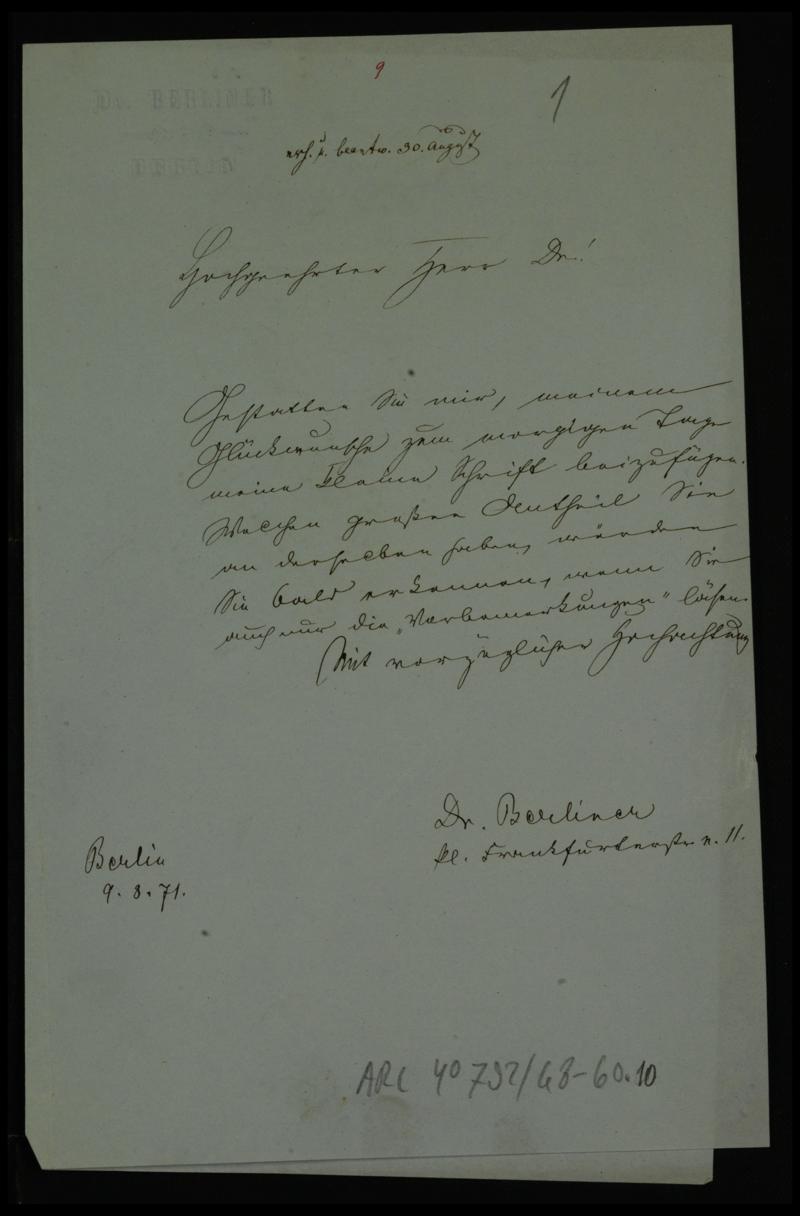 9
1
Dr. BERLINER
BERLIN
erh. u. beantw. 30. August
Hochgeehrter Herr Dr.!
Gestatten Sie mir, meinem
Glückwunsche zum morgigen Tage
meine kleine Schrift beizufügen.
Welchen großen Antheil Sie
an derselben haben, würden
Sie bald erkennen, wenn Sie
auch nur die „Vorbemerkungen“ läsen.
Mit vorzüglicher Hochachtung
Dr. Berliner
kl. Frankfurterstr. 11.
Berlin
9. 8. 71.
ARC 40 792/G8-60.10